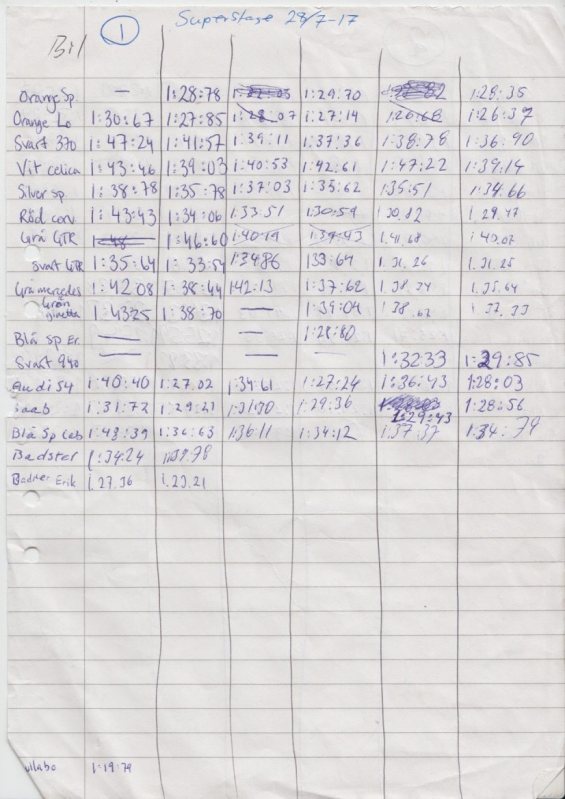 Bil 1 Superstage 28/7-17
Orange Sp — 1:28:78 1:29:70 1:28:35
Orange Lo 1:30:67 1:27:85 1:28:07 1:27:14 1:26:68 1:26:37
Svart 370 1:47:24 1:41:57 1:39:11 1:37:36 1:38:78 1:36:90
Vit celica 1:43:46 1:39:03 1:40:53 1:42:61 1:47:22 1:39:14
Silver sp 1:38:78 1:35:78 1:37:03 1:35:62 1:35:51 1:34.66
Röd corv 1:43:43 1:34:06 1:33:51 1:30:59 1 30.82 1 29.47
Grå GTR 1:46:60 1:40:19 1:39:43 1.41.68 1 40.07
Svart GTR 1:35:64 1:33:54 1:3486 1 33:64 1.31.26 1.31.25
Grå mercedes 1:42 08 1:38:44 1:42:13 1:37:62 1.38.34 1.35.64
Grön ginetta 1:43:25 1:38:70 — 1:39:04 1 38.62 1 37.33
Blå Sp Er. — — — 1:28:80
Svart 940 — — — — 1:32:33 1:29:85
Audi S4 1:40:40 1:27.02 1:34:61 1:27:24 1:36:43 1:28:03
Saab 1:31:72 1:29:21 1:31:30 1:29:36 1:29:43 1:28:56
Blå Sp Cab 1:43:39 1:36:63 1:36:11 1:34:12 1:37:37 1:34:74
Badster 1:34:24 1:39.78
Badster Erik 1.27.36 1.23.21
1:19:79